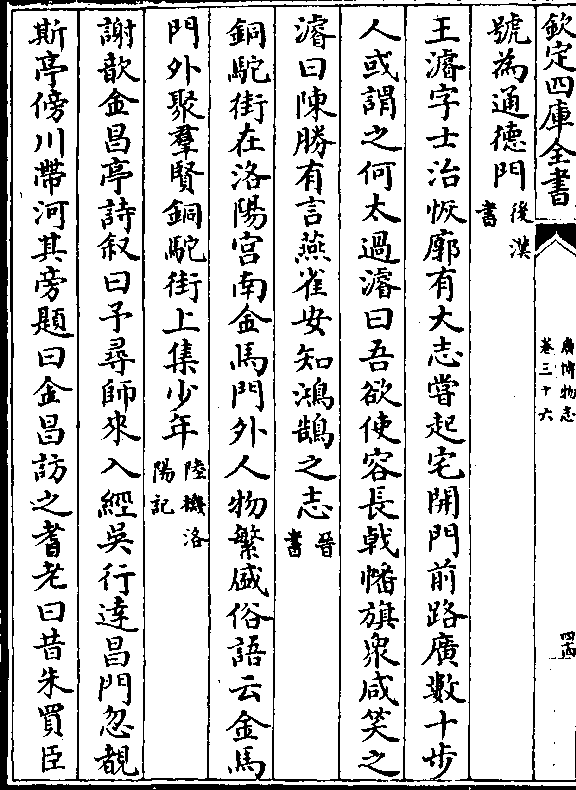 欽定四庫全書
廣博物志
卷三十六
四十四
號為通德門後漢
書
王濬字士治恢廓有大志嘗起宅開門前路廣數十歩
人或謂之何太過濬曰吾欲使容長㦸幡旗衆咸笑之
濬曰陳勝有言燕雀安知鴻鵠之志晉
書
銅駝街在洛陽宫南金馬門外人物繁盛俗語云金馬
門外聚羣賢銅駝街上集少年陸機洛
陽記
謝歆金昌亭詩叙曰予尋師來入經吳行達昌門忽覩
斯亭傍川帶河其旁題曰金昌訪之耆老曰昔朱買臣